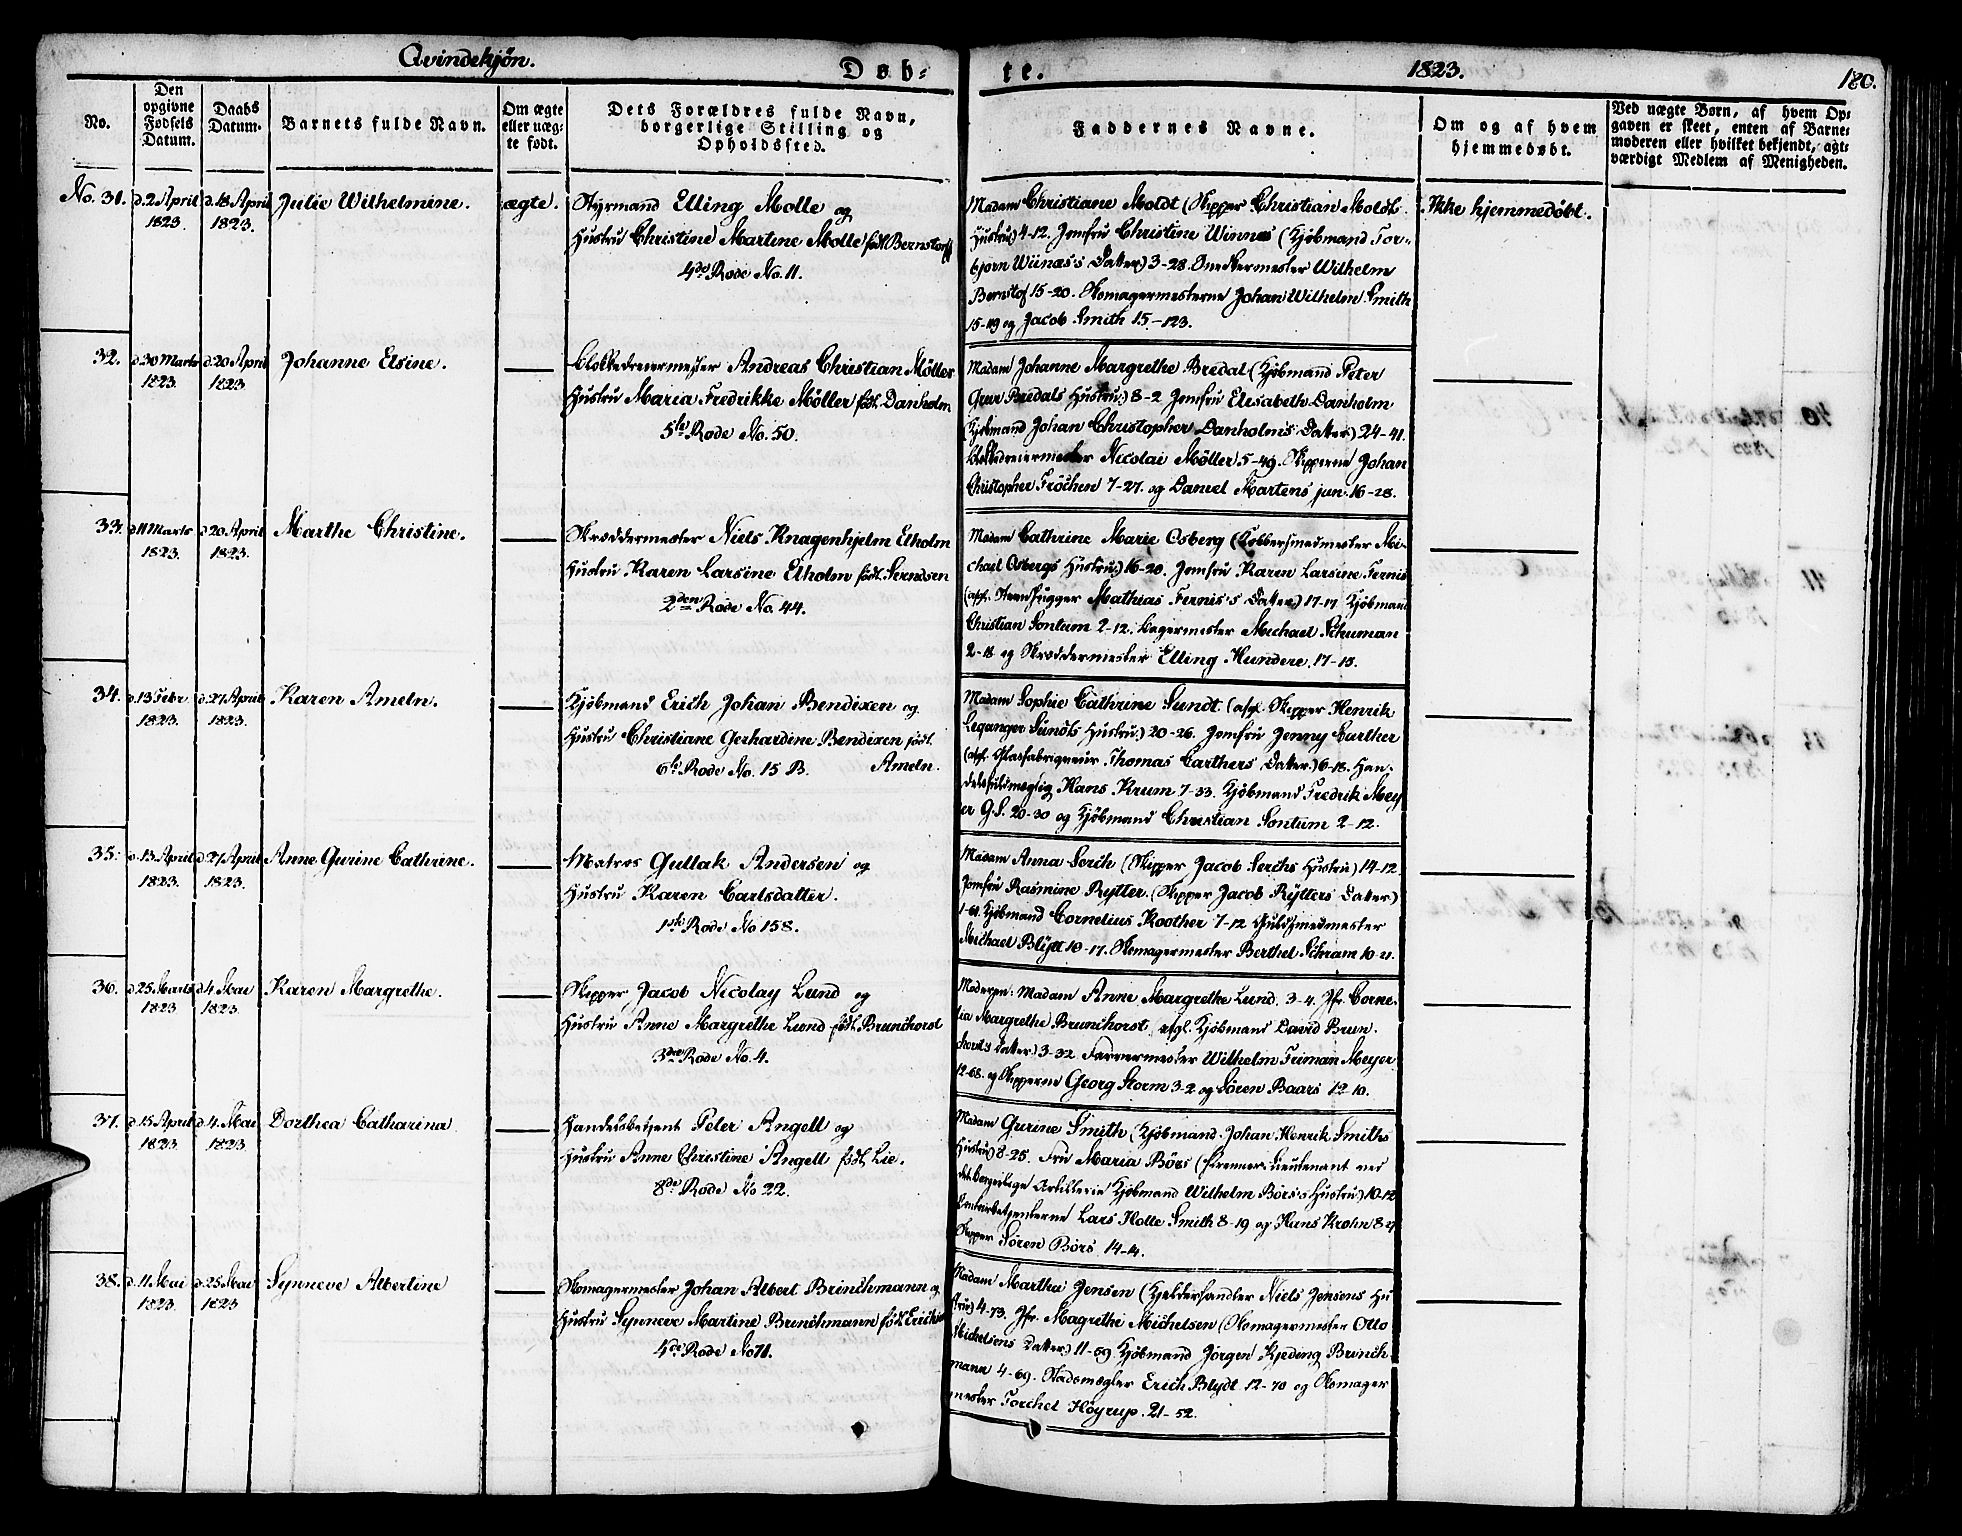 Qvindekjøn.
Døb-
te.
1823.
180.
No.
Den opgivne Fødsels Datum.
Daabs Datum.
Barnets fulde Navn.
Om ægte eller uæg- te født.
Dets Forældres fulde Navn, borgerlige Stilling og Opholdssted.
Faddernes Navne.
Om og af hvem hjemmedøbt.
Ved uægte Børn, af hvem Op- gaven er skeet, enten af Barne- moderen eller hvilket bekjendt, agt- værdigt Medlem af Menigheden.
No. 31. d. 2 April 1823. d. 18 April 1823. Julie Wilhelmine. ægte.
Styrmand Elling Molle og
Hustru Christine Martine Molle født Bernstorff
4de Rode No. 11.
Madam Christiane Moldt (Skipper Christian Moldt
Hustru) 4-12. Jomfru Christine Winnes (Kjöbmand Tor-
bjorn Wiinæs's Datter) 3-28. Snedkermester Wilhelm
Bernstof 15-20. Skomagermesterne Johan Wilhelm Smith
15-119 og Jacob Smith 15-123.
Ikke hjemmedøbt.
32. d. 30 Marts 1823. d. 20 April 1823 Johanne Elsine.
Blokkedreiermester Andreas Christian Møller
Hustru Maria Fredrikke Møller født Danholm
5te Rode No. 50.
Madam Johanne Margrethe Bredal (Kjöbmand Peter
Grav Bredals Hustru) 8-2 Jomfru Elisabeth Danholm
(Kjöbmand Johan Christopher Danholms Datter) 24-41.
Blokkedreiermester Nicolai Møller 5-49. Skipperne Johan
Christopher Fröchen 7-27. og Daniel Martens jun. 16-28.
33. d. 11 Marts 1823. d. 20 April 1823. Marthe Christine.
Skræddermester Niels Knagenhjelm Elholm
Hustru Karen Larsine Elholm født Serndsen
2den Rode No. 44.
Madam Cathrine Marie Osberg (Kobbersmedmester Mi-
chael Osbergs Hustru) 16-20. Jomfru Karen Larsine Fernis
(afg. Steenhugger Mathias Fernis's Datter) 17-17 Kjöbmand
Christian Sontum 2-12. Bagermester Michael Schuman
2-18 og Skræddermester Elling Hundere. 17-15.
34. d. 13 Febr 1823. d. 27 April 1823. Karen Ameln.
Kjöbmand Erich Johan Bendixen og
Hustru Christiane Gerhardine Bendixen født
6te Rode No. 15 B. Ameln.
Madam Sophie Cathrine Sundt (afg. Skipper Henrik
Leganger Sundts Hustru) 20-26. Jomfru Jenny Carther
(afg. Glasfabriqueur Thomas Carthers Datter) 6-18. Han-
delsfuldmægtig Hans Krum 7-33. Kjöbmand Fredrik Mey
er G.S. 20-30 og Kjöbmand Christian Sontum 2-12.
35. d. 13 April 1823. d. 27 April 1823. Anne Gurine Cathrine.
Matros Gullak Andersen og
Hustru Karen Carlsdatter.
1ste Rode No 158.
Madam Anna Serch (Skipper Jacob Serchs Hustru) 14-12.
Jomfru Rasmine Rytter. (Skipper Jacob Rytters Datter)
1-61. Kjöbmand Cornelius Koother 7-12 Guldsmedmester
Michael Blytt 10-17. Skomagermester Berthel Schram 10-21.
36. d. 25 Marts 1823 d. 4 Mai 1823. Karen Margrethe.
Skipper Jacob Nicolay Lund og
Hustru Anne Margrethe Lund født Brunchorst
3die Rode No. 4.
Moderen: Madam Anne Margrethe Lund 3-4. Jfr. Corne-
lia Margrethe Brunchorst, afgl. Kjöbmand David Brun-
chorsts Datter) 3-32. Farvermester Wilhelm Friman Meyer
12-68. og Skipperne Georg Storm 3-2 og Sören Baars 12-10.
37. d. 15 April 1823. d. 4 Mai 1823. Dorthea Catharina
Handelsbetjent Peter Angell og
Hustru Anne Christine Angell født Lie.
8de Rode No 22.
Madam Gurine Smith (Kjöbmand Johan Henrik Smiths
Hustru) 8-25. Fru Maria Börs (Premier-Lieutenant ved
det borgerlige Artillerie Kjöbmand Wilhelm Börs's Hustru) 10-12
Contoirbetjenterne Lars Holte Smith 8-19 og Hans Krohn 8-4
Skipper Sören Börs 14-4.
38. d. 11 Mai 1823. d. 25 Mai 1823 Synneve Albertine
Skomagermester Johan Albert Brinchmann og
Hustru Synneve Martine Brinchmann født Erichsen
4de Rode No 11.
Madam Martha Jensen (Kjelderhandler Niels Jensens Hu
stru) 4-73. Jfr. Magrethe Michelsen (Skomagermester Otto
Michelsens Datter) 11-59 Kjöbmand Jörgen Kjeding Brinch-
mann 4-69. Stadsmægler Erich Blydt 12-70 og Skomager
mester Torchel Höyrup. 21-52.